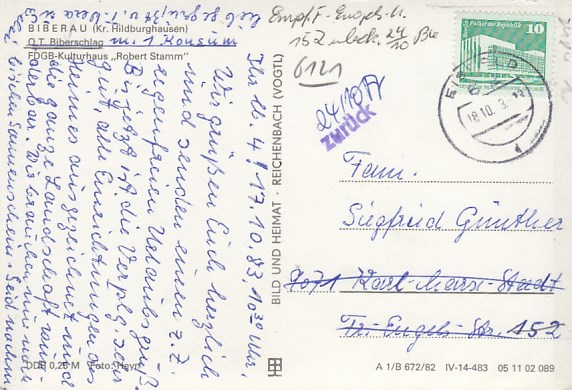 BIBERAU (Kr. Hildburghausen)
O.T. Biberschlag m. 1. Konsum
FDGB-Kulturhaus „Robert Stamm"
Ihr lb. 4! 17.10.83, 10.30 Uhr,
Wir grüßen Euch herzlich
und senden einen z. Z.
regenfreien Urlaubsgruß
Bis jetzt ist die Verpfleg. sehr
gut, alle Einrichtungen des
Heimes ausgezeichnet und
die ganze Landschaft wun-
derbar. Wir brauchen nur noch
bißchen Sonnenschein. Seid nochmal
lieb gegrüßt v.
DDR 0,25 M Foto: Heyn
BILD UND HEIMAT REICHENBACH (VOGTL)
Empf.
152
24/10
6121
24/10 77
zurück
POSTAGE
Palast der Republik
10
DDR
EISFELD
18.10.83
Fam.
Siegfried Günther
9071 Karl-Marx-Stadt
Fr.-Engels-Str. 152
A 1/B 672/82 IV-14-483 05 11 02 089